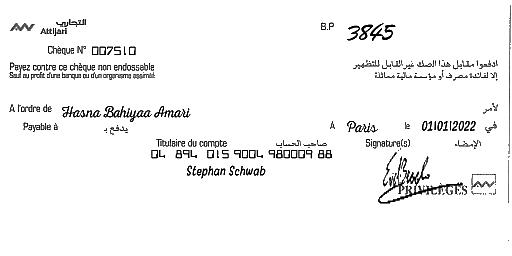 التجاري
Attijari
B.P 3845
Chèque N° 007510
Payez contre ce chèque non endossable
Sauf au profit d'une banque ou d'un organisme assimilé
ادفعوا مقابل هذا الصك غير القابل للتظهير
إلا لفائدة مصرف أو مؤسسة مالية مماثلة
A l'ordre de Hasna Bahiyaa Amari لأمر
Payable à يدفع بـ
A Paris le 01/01/2022 في
Titulaire du compte صاحب الحساب
Signature(s) الإمضاء
04 894 015 9004 980009 88
Stephan Schwab
PRIVILÈGES